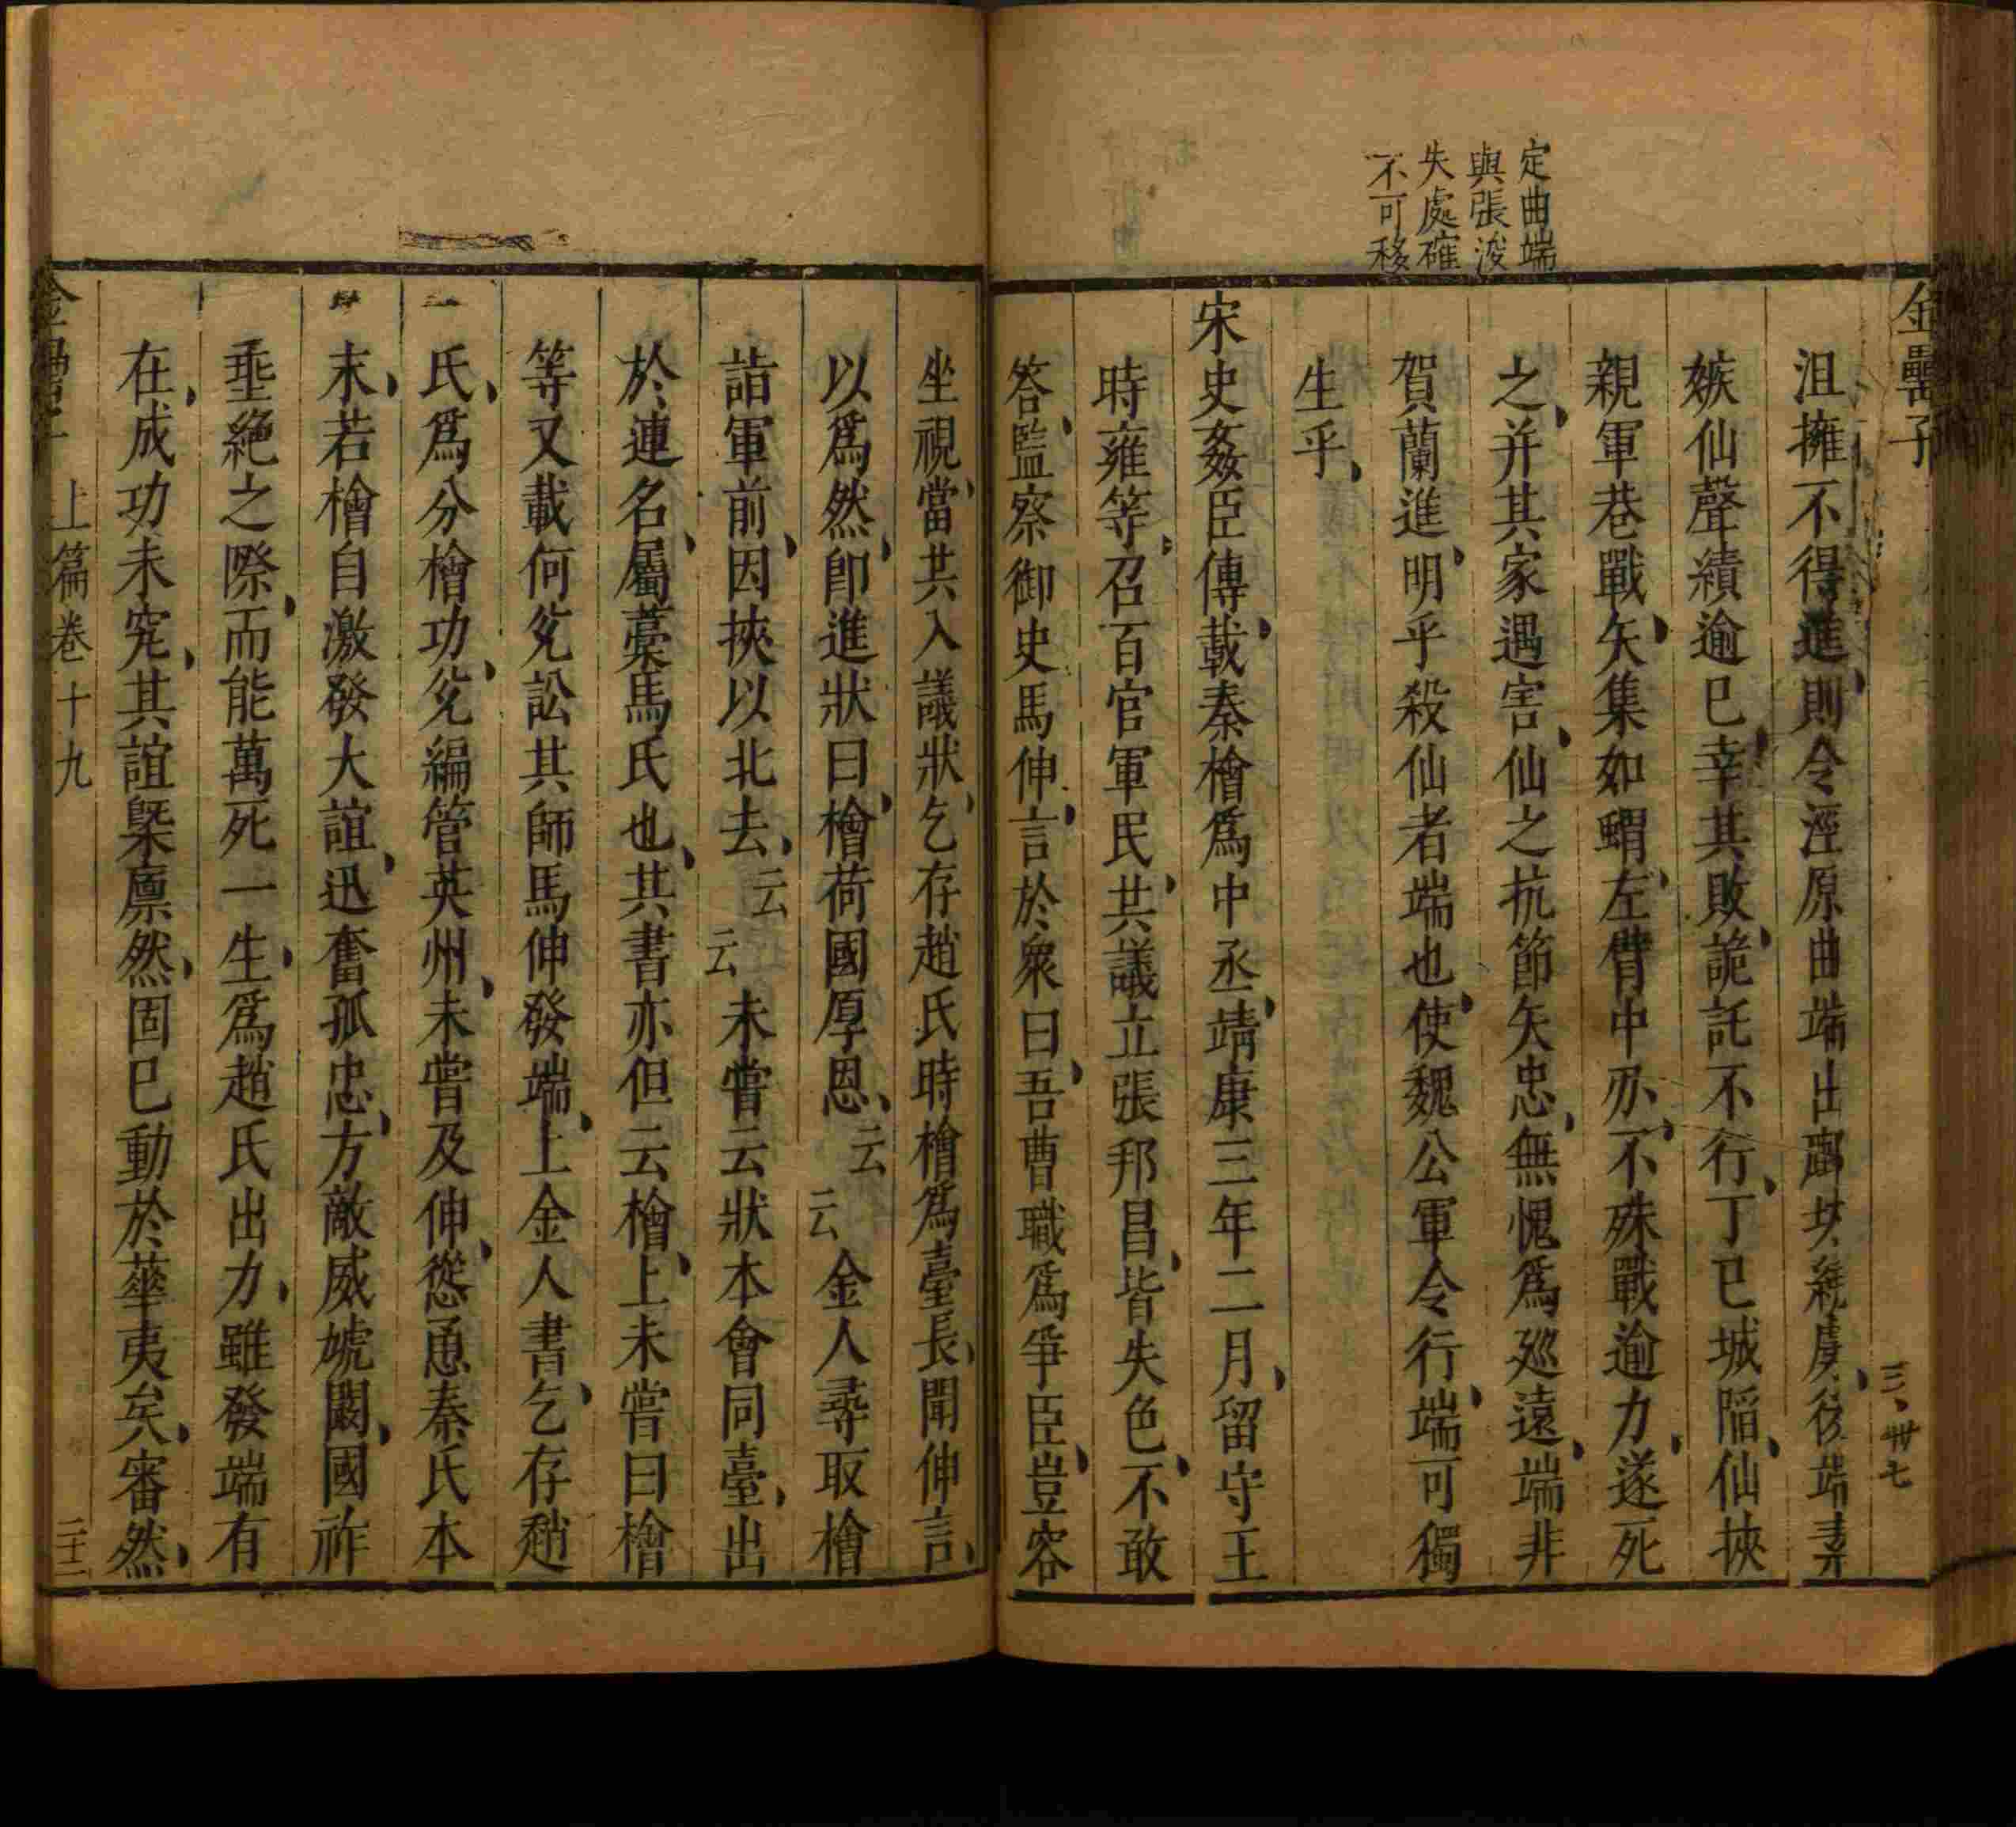 金罍子
定曲端
與張浚
失處確
不可移
沮擁不得進則令涇原曲端出鄜坊繞虜後端素
嫉仙聲績逾巳幸其敗詭託不行丁巳城陷仙挾
親軍巷戰矢集如蝟左臂中刅不殊戰逾力遂死
之并其家遇害仙之抗節矢忠無愧爲廵遠端非
賀蘭進明乎殺仙者端也使魏公軍令行端可獨
生乎
宋史姦臣傳載秦檜爲中丞靖康三年二月留守王
時雍等召百官軍民共議立張邦昌皆失色不敢
答監察御史馬伸言於衆曰吾曹職爲爭臣豈容
三卅七
坐視當共入議狀乞存趙氏時檜爲臺長聞伸言
以爲然卽進狀曰檜荷國厚恩云云金人尋取檜
詣軍前因挾以北去云云未嘗云狀本會同臺出
於連名屬藁馬氏也其書亦但云檜上未嘗曰檜
等又載何兊訟其師馬伸發端上金人書乞存趙
氏爲分檜功兊編管英州未嘗及伸慫恿秦氏本
末若檜自激發大誼迅奮孤忠方敵威虓闞國祚
垂絶之際而能萬死一生爲趙氏出力雖發端有
在成功未究其誼槩凛然固巳動於華夷矣審然
金罍子 上篇卷十九 二十二